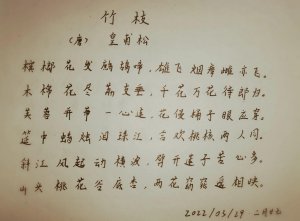 竹枝
(唐) 皇甫松
槟榔花发鹧鸪啼,雄飞烟瘴雌亦飞。
木棉花尽荔支垂,千花万花待郎归。
芙蓉并蒂一心连,花侵槅子眼应穿。
筵中蜡烛泪珠红,合欢桃核两人同。
斜江风起动横波,劈开莲子苦心多。
山头桃花谷底杏,两花窈窕遥相映。
2022/03/29 二月廿七